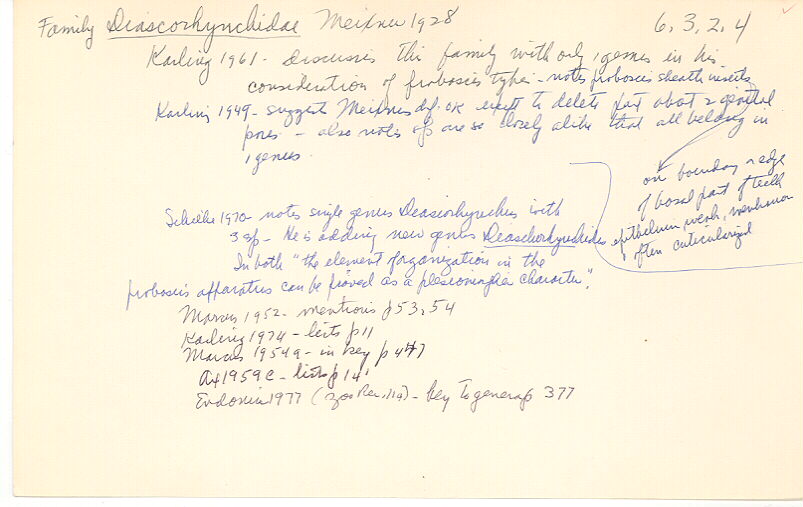 Family Diascorhynchidae Meixner 1928 6.3.2.4
Karling 1961 - discusses this family with only 1 genus in his
consideration of proboscis types - notes proboscis sheath inserts
Karling 1949 - suggests Meixners def. OK except to delete part about 2 genital
pores - also notes spp are so closely alike that all belong in
1 genus.
on boundary or edge
of basal part of teeth
epithelium weak, membrane
often cuticularized
Schilke 1970 - notes single genus Diascorhynchus with
3 sp - He is adding new genus Diaschorhynchides
In both "the element of organization in the
proboscis apparatus can be proved as a plesiomorphic character".
Marcus 1952 - mentions p 53, 54
Karling 1974 - lists p 11
Marcus 1954a - in key p 447
Ax 1959c - lists p 141
Evdonin 1977 (Zoo Rec. 114) - key to genera p 377